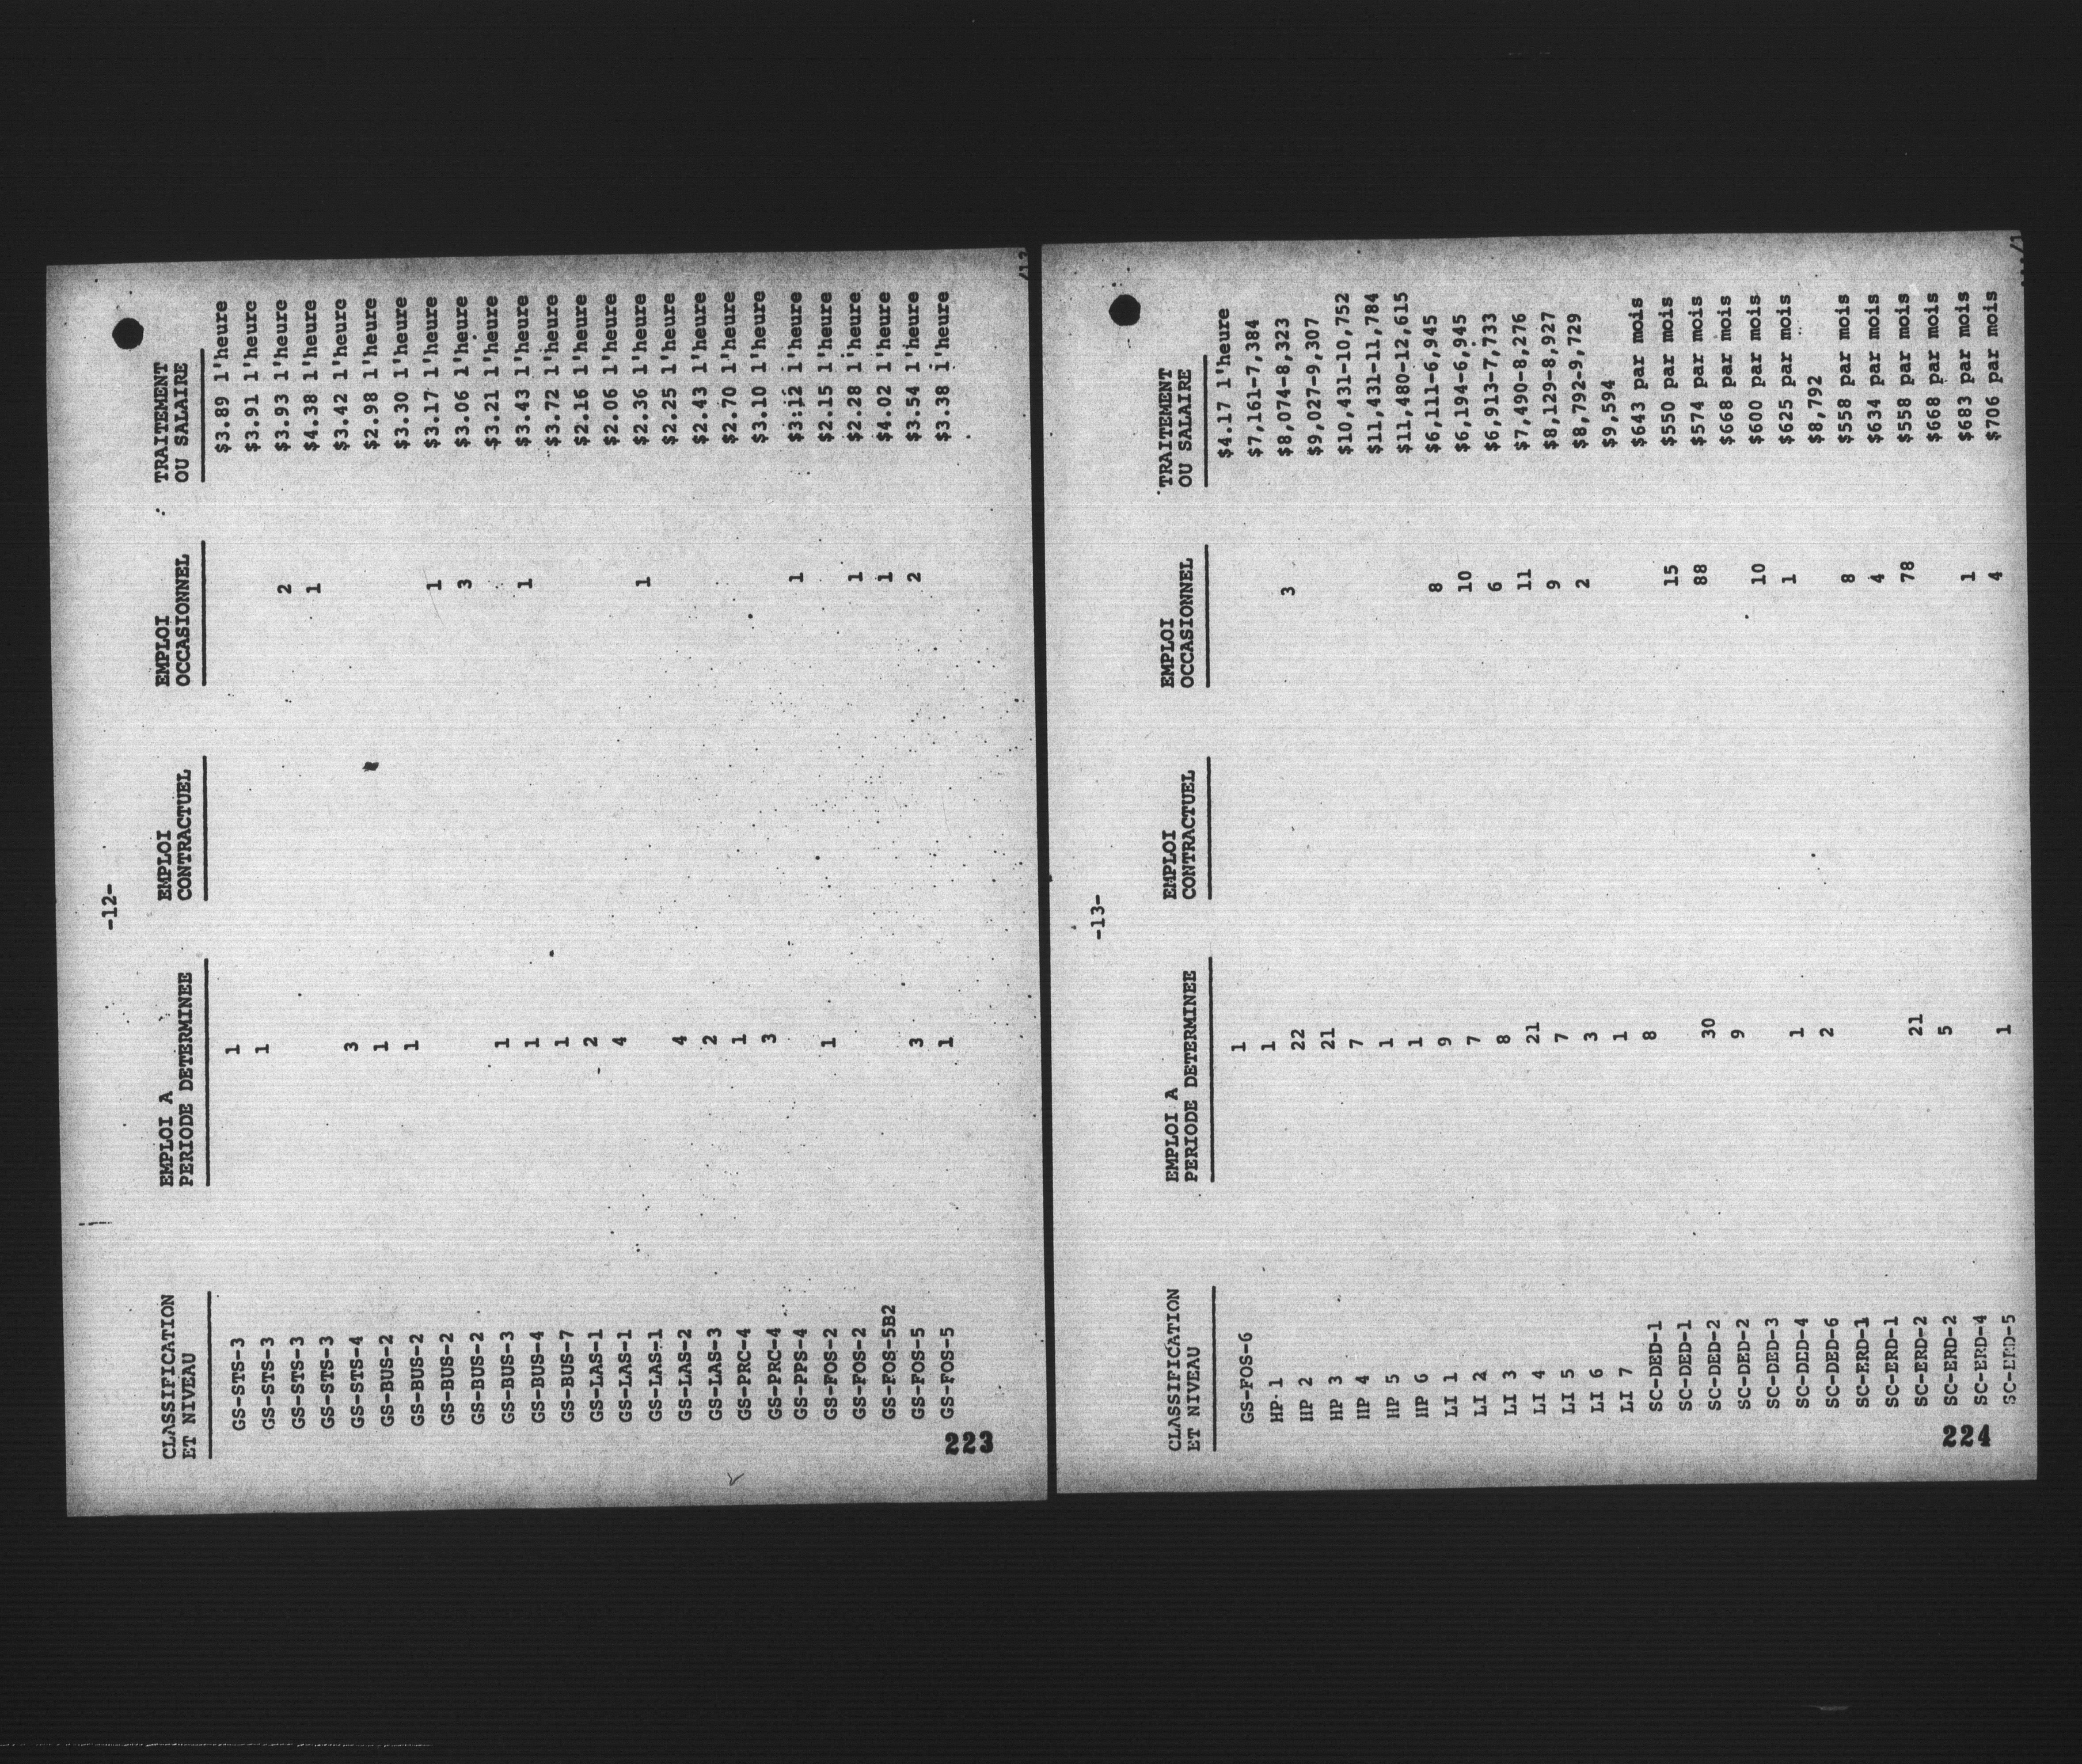 -12-
CLASSIFICATION EMPLOI A EMPLOI EMPLOI TRAITEMENT
ET NIVEAU PERIODE DETERMINEE CONTRACTUEL OCCASIONNEL OU SALAIRE
GS-STS-3 1 $3.89 l'heure
GS-STS-3 1 $3.91 l'heure
GS-STS-3 2 $3.93 l'heure
GS-STS-3 1 $4.38 l'heure
GS-STS-4 3 $3.42 l'heure
GS-BUS-2 1 $2.98 l'heure
GS-BUS-2 1 $3.30 l'heure
GS-BUS-2 1 $3.17 l'heure
GS-BUS-2 3 $3.06 l'heure
GS-BUS-3 1 $3.21 l'heure
GS-BUS-4 1 1 $3.43 l'heure
GS-BUS-7 1 $3.72 l'heure
GS-LAS-1 2 $2.16 l'heure
GS-LAS-1 4 $2.06 l'heure
GS-LAS-1 1 $2.36 l'heure
GS-LAS-2 4 $2.25 l'heure
GS-LAS-3 2 $2.43 l'heure
GS-PRC-4 1 $2.70 l'heure
GS-PRC-4 3 $3.10 l'heure
GS-PPS-4 1 $3.12 l'heure
GS-FOS-2 1 $2.15 l'heure
GS-FOS-2 1 $2.28 l'heure
GS-FOS-5B2 1 $4.02 l'heure
GS-FOS-5 3 2 $3.54 l'heure
GS-FOS-5 1 $3.38 l'heure
223
-13-
CLASSIFICATION EMPLOI A EMPLOI EMPLOI TRAITEMENT
ET NIVEAU PERIODE DETERMINEE CONTRACTUEL OCCASIONNEL OU SALAIRE
GS-FOS-6 1 $4.17 l'heure
HP 1 1 $7,161-7,384
HP 2 22 3 $8,074-8,323
HP 3 21 $9,027-9,307
HP 4 7 $10,431-10,752
HP 5 1 $11,431-11,784
HP 6 1 $11,480-12,615
LI 1 9 8 $6,111-6,945
LI 2 7 10 $6,194-6,945
LI 3 8 6 $6,913-7,733
LI 4 21 11 $7,490-8,276
LI 5 7 9 $8,129-8,927
LI 6 3 2 $8,792-9,729
LI 7 1 $9,594
SC-DED-1 8 $643 par mois
SC-DED-1 15 $550 par mois
SC-DED-2 30 88 $574 par mois
SC-DED-2 9 $668 par mois
SC-DED-3 10 $600 par mois
SC-DED-4 1 1 $625 par mois
SC-DED-6 2 $8,792
SC-ERD-1 8 $558 par mois
SC-ERD-1 4 $634 par mois
SC-ERD-2 21 78 $558 par mois
SC-ERD-2 5 $668 par mois
SC-ERD-4 1 $683 par mois
SC-ERD-5 1 4 $706 par mois
224